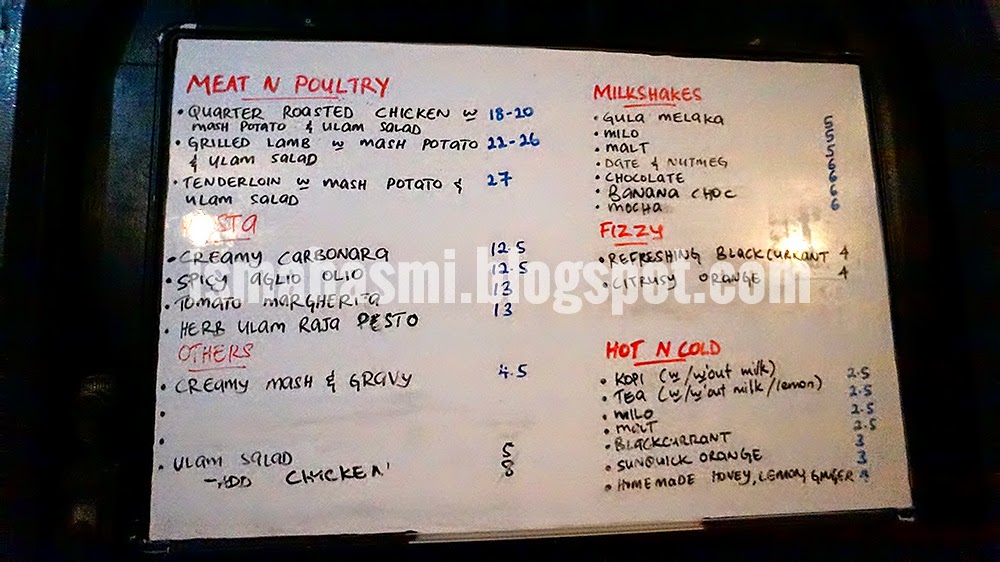 MEAT N POULTRY
• QUARTER ROASTED CHICKEN w 18-20
MASH POTATO & ULAM SALAD
• GRILLED LAMB w MASH POTATO 22-26
& ULAM SALAD
• TENDERLOIN w MASH POTATO & 27
ULAM SALAD
PASTA
• CREAMY CARBONARA 12.5
• SPICY AGLIO OLIO 12.5
• TOMATO MARGHERITA 13
• HERB ULAM RAJA PESTO 13
OTHERS
• CREAMY MASH & GRAVY 4.5
•
•
• ULAM SALAD 5
- ADD CHICKEN 8
MILKSHAKES
• GULA MELAKA 5
• MILO 5
• MALT 5
• DATE & NUTMEG 6
• CHOCOLATE 6
• BANANA CHOC 6
• MOCHA 6
FIZZY
• REFRESHING BLACKCURRANT 4
• CITRUSY ORANGE 4
HOT N COLD
• KOPI (w/w'out milk) 2.5
• TEA (w/w'out milk/lemon) 2.5
• MILO 2.5
• MALT 2.5
• BLACKCURRANT 3
• SUNQUICK ORANGE 3
• HOMEMADE HONEY, LEMON, GINGER 4
hasmi.blogspot.com